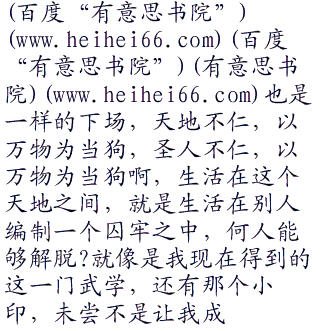 (百度“有意思书院”)
(www.heihei66.com)(百度
“有意思书院”)(有意思书
院)(www.heihei66.com)也是
一样的下场，天地不仁，以
万物为当狗，圣人不仁，以
万物为当狗啊，生活在这个
天地之间，就是生活在别人
编制一个囚牢之中，何人能
够解脱?就像是我现在得到的
这一门武学，还有那个小
印，未尝不是让我成